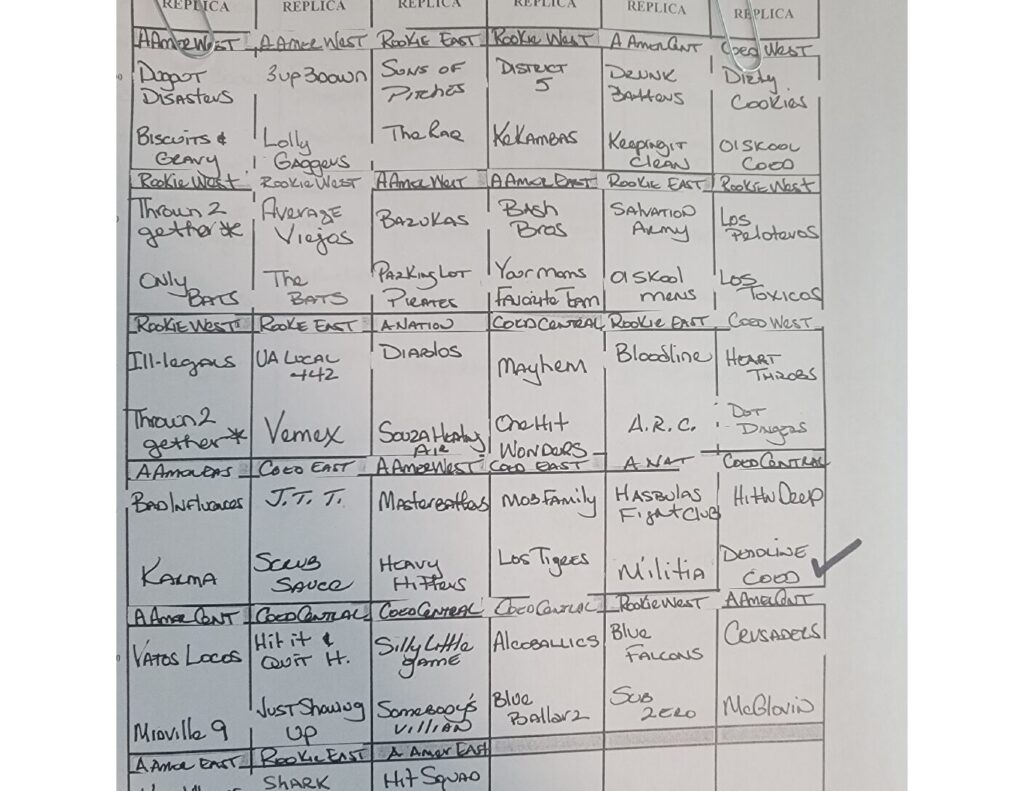 REPLICA REPLICA REPLICA REPLICA REPLICA REPLICA
AAmerWest AAmerWest Rookie East Rookie West A AmerCent Coed West
Dugout 3up3down Sons of District Drunk Dirty
Disasters Pitches 5 Batters Cookies
Biscuits & Lolly TheRae KeKambas Keepingit OlSkool
Gravy Gaggers Clean Coed
Rookie West Rookie West AAmerWest AAmerEast Rookie East Rookie West
Thrown 2 Average Bazukas Bash Salvation Los
gether* Viejos Bros Army Peloteros
Only The Parking Lot Your moms Ol Skool Los
Bats Bats Pirates Favorite Team mens Toxicos
Rookie West Rookie East A Nation Coed Central Rookie East Coed West
Ill-legals UA Local Diablos Mayhem Bloodline Heart
442 Throbs
Thrown 2 Vemex Souza Heating One Hit A.R.C. Dot
gether* Air Wonders Dingers
AAmerEas Coed East AAmerWest Coed East A Nat Coed Central
Bad Influences J.T.T. Masterbatters Mob Family Hasbulas HitnDeep
Fight Club
Karma Scrub Heavy Los Tigres Militia Deadline
Sauce Hitters Coed
A Amer Cent Coed Central Coed Central Coed Central Rookie West AAmerCent
Vatos Locos Hit it & Silly Little Alcoballics Blue Crusaders
Quit It. Game Falcons
Mioville 9 Just Showing Somebody's Blue Sub McGlovin
Up Villian Ballarz Zero
A Amer East Rookie East A Amer East
Shark Hit Squad